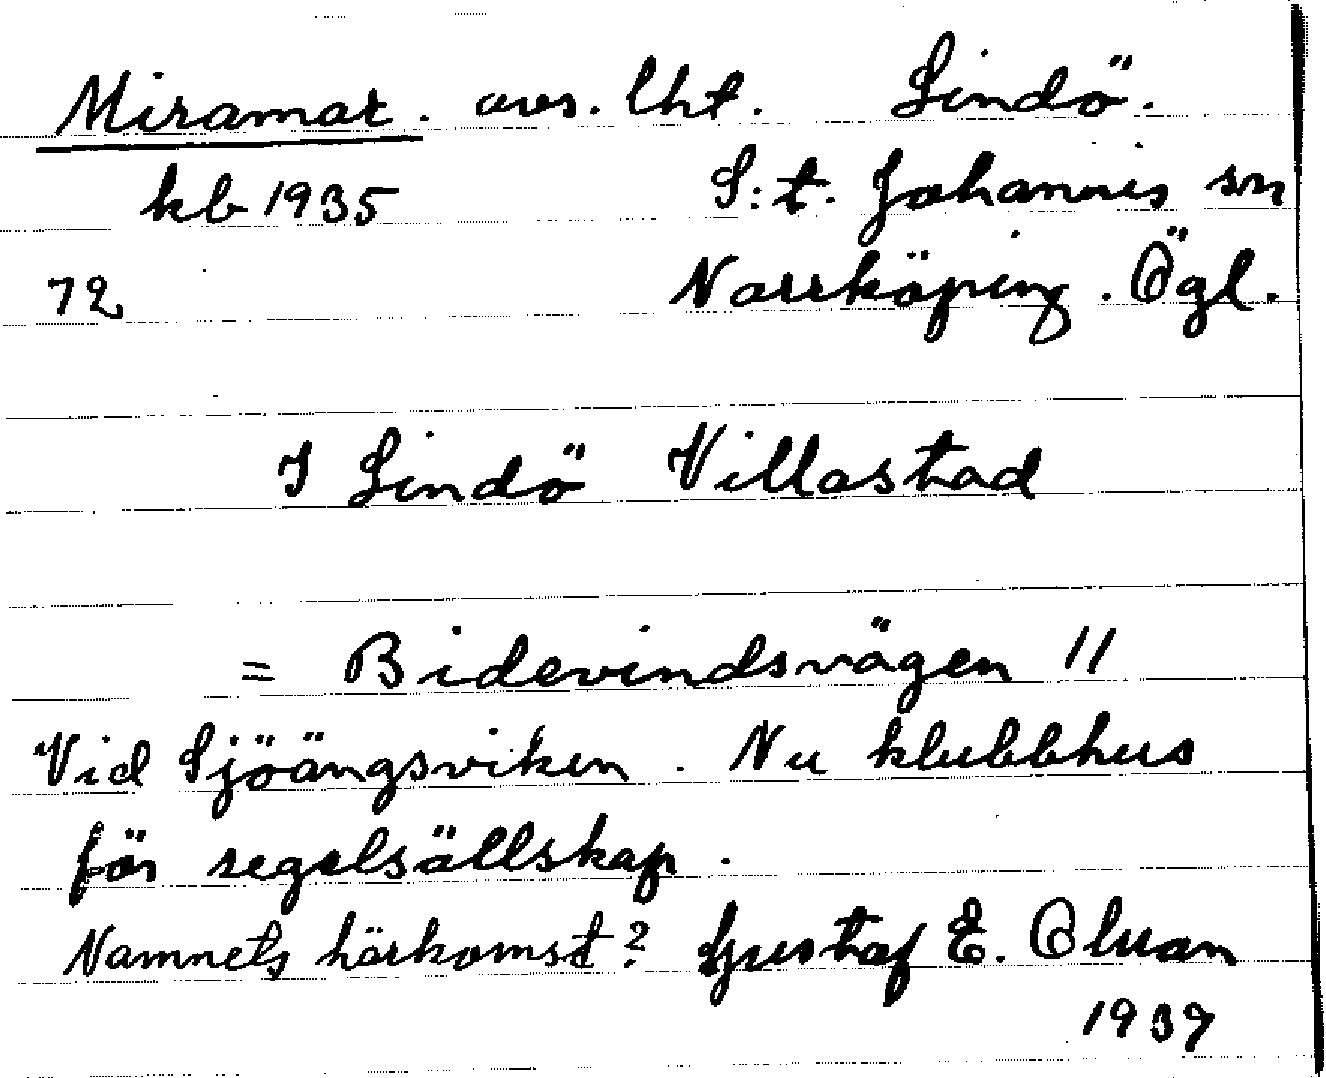 Miramar. avs. lht. Lindö.
kb 1935 S:t. Johannis sn
72 Norrköping. Ögl.
I Lindö Villastad
= Bidevindsvägen 11
Vid Sjöängsviken. Nu klubbhus
för segelsällskap.
Namnets härkomst? Gustaf E. Olson
1939